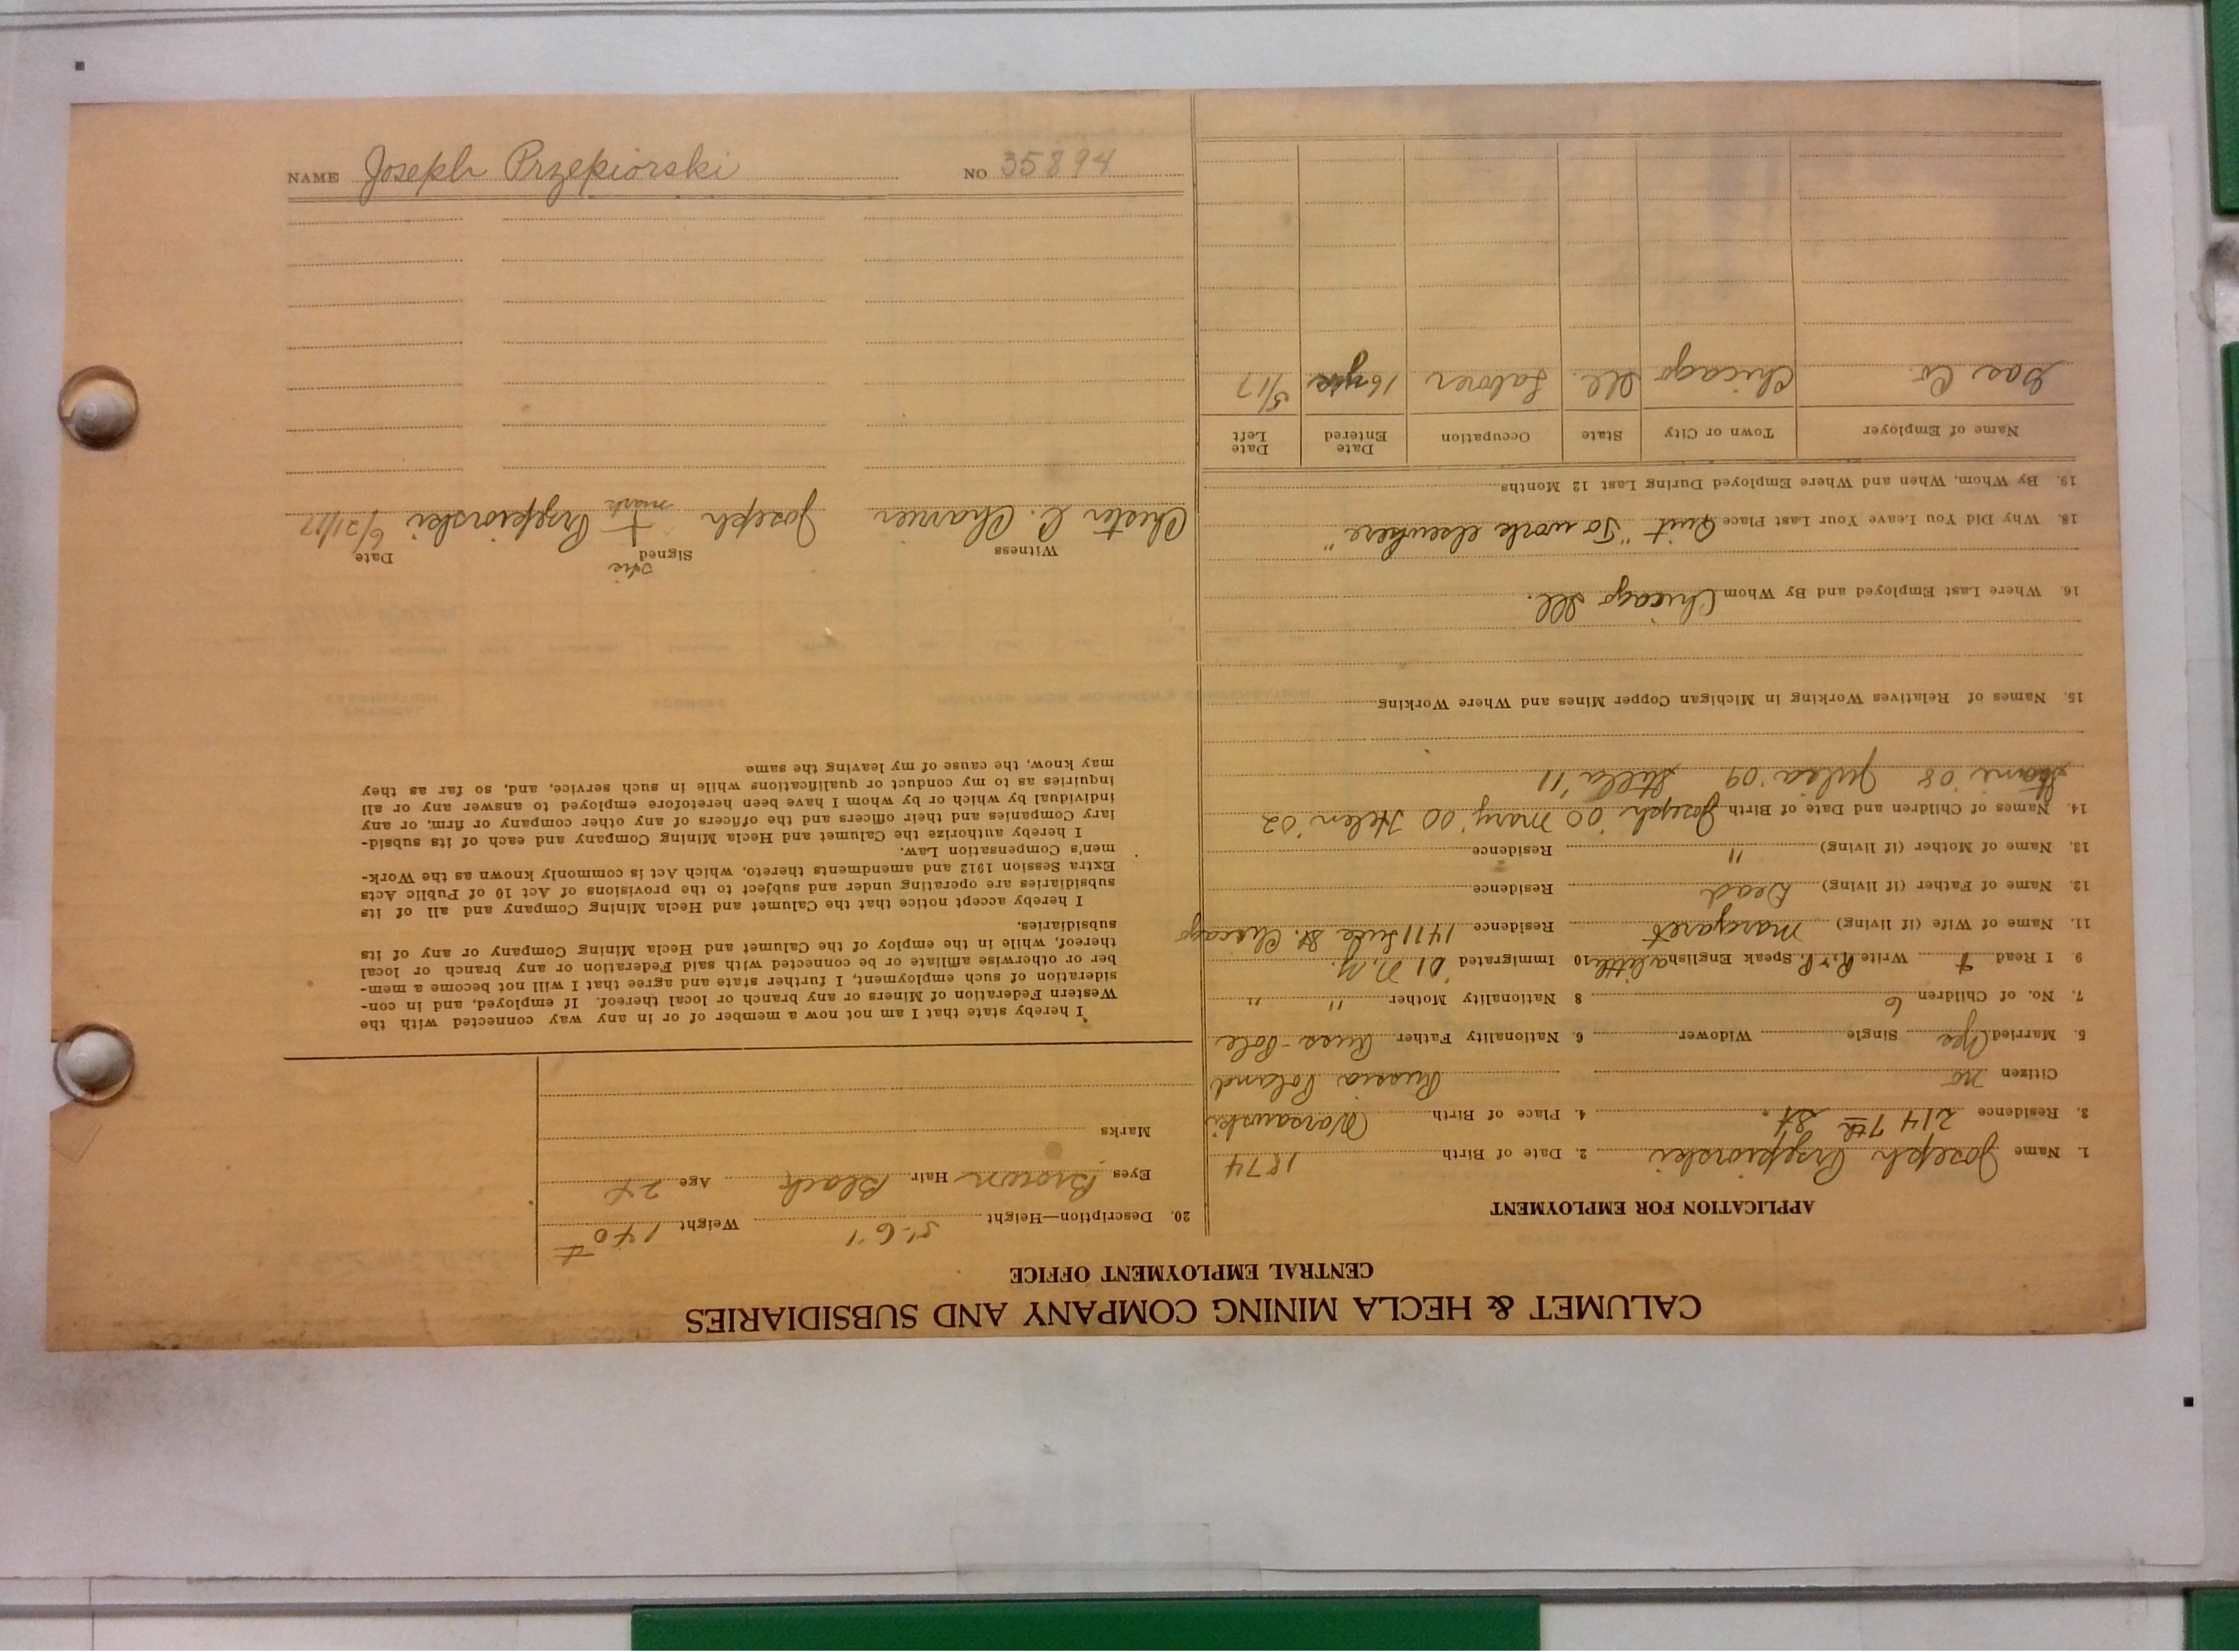 CALUMET & HECLA MINING COMPANY AND SUBSIDIARIES
CENTRAL EMPLOYMENT OFFICE
APPLICATION FOR EMPLOYMENT
1. Name Joseph Przepiorski 2. Date of Birth 1874
3. Residence 214 7th St. 4. Place of Birth Warsawski
Citizen no Russia Poland
5. Married Yes Single Widower 6. Nationality Father Russ-Pole
7. No. of Children 6 8 Nationality Mother " "
9. I Read Write Speak English a little 10 Immigrated '01 N.Y.
11. Name of Wife (if living) Margaret Residence 1411 St. Chicago
12. Name of Father (if living) Dead Residence
13. Name of Mother (if living) " Residence
14. Names of Children and Date of Birth Joseph '00 Mary '00 Helen '02
'08 Julia '09 Stella '11
15. Names of Relatives Working in Michigan Copper Mines and Where Working
16. Where Last Employed and By Whom Chicago Ill.
18. Why Did You Leave Your Last Place Quit "To work elsewhere"
19. By Whom, When and Where Employed During Last 12 Months
Name of Employer Town or City State Occupation Date Entered Date Left
Gas Co. Chicago Ill. Laborer 16 yrs 5/17
20. Description—Height 5'-6" Weight 140#
Eyes Brown Hair Black Age
Marks
I hereby state that I am not now a member of or in any way connected with the
Western Federation of Miners or any branch or local thereof. If employed, and in con-
sideration of such employment, I further state and agree that I will not become a mem-
ber or otherwise affiliate or be connected with said Federation or any branch or local
thereof, while in the employ of the Calumet and Hecla Mining Company or any of its
subsidiaries.
I hereby accept notice that the Calumet and Hecla Mining Company and all of its
subsidiaries are operating under and subject to the provisions of Act 10 of Public Acts
Extra Session 1912 and amendments thereto, which Act is commonly known as the Work-
men's Compensation Law.
I hereby authorize the Calumet and Hecla Mining Company and each of its subsid-
iary Companies and their officers and the officers of any other company or firm, or any
individual by which or by whom I have been heretofore employed to answer any or all
inquiries as to my conduct or qualifications while in such service, and, so far as they
may know, the cause of my leaving the same
his
Witness Signed Date
Chester C. Joseph + Przepiorski 6/21/17
mark
NAME Joseph Przepiorski NO 35894